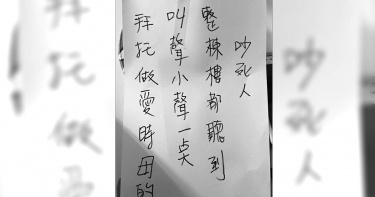 吵死人
整棟樓都聽到
叫聲小聲一点
拜托做愛時母的